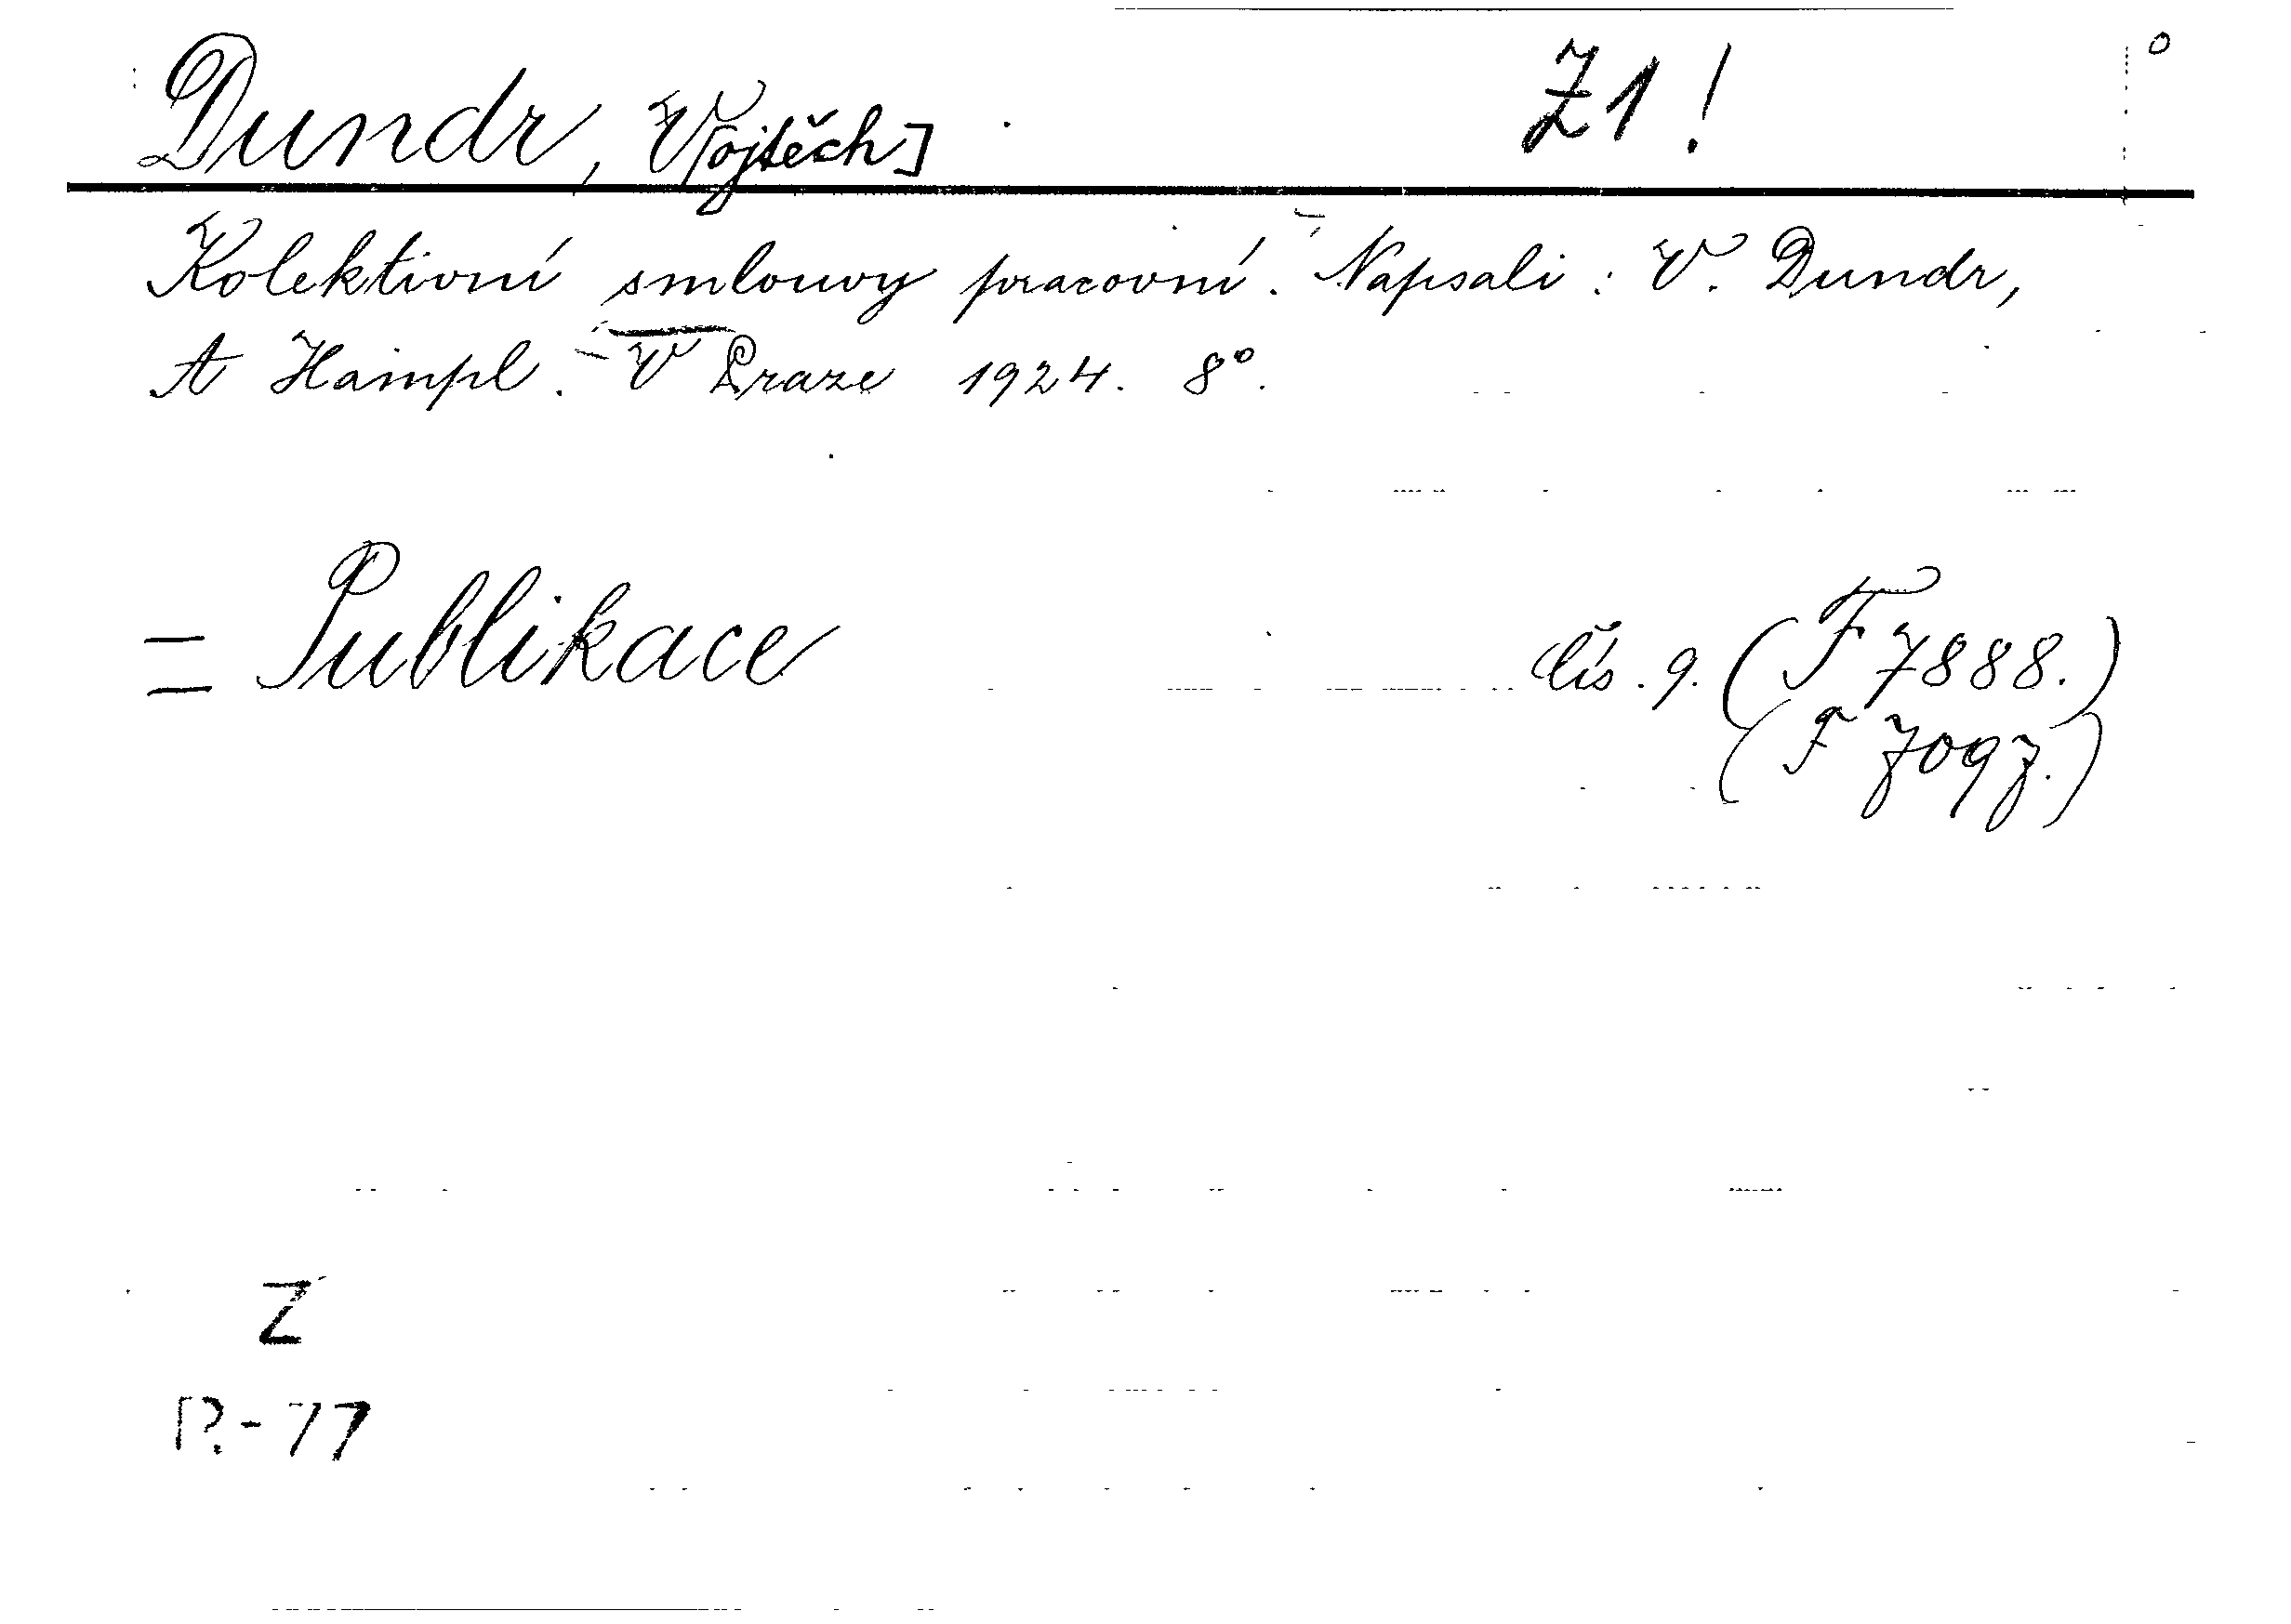 Dundr, V[ojtěch] Z1!
Kolektivní smlouvy pracovní. Napsali: V. Dundr,
A Hampl. - V Praze 1924. 8°.
= Publikace čís. 9. (F 7888.)
(F 7097.)
Z
-77